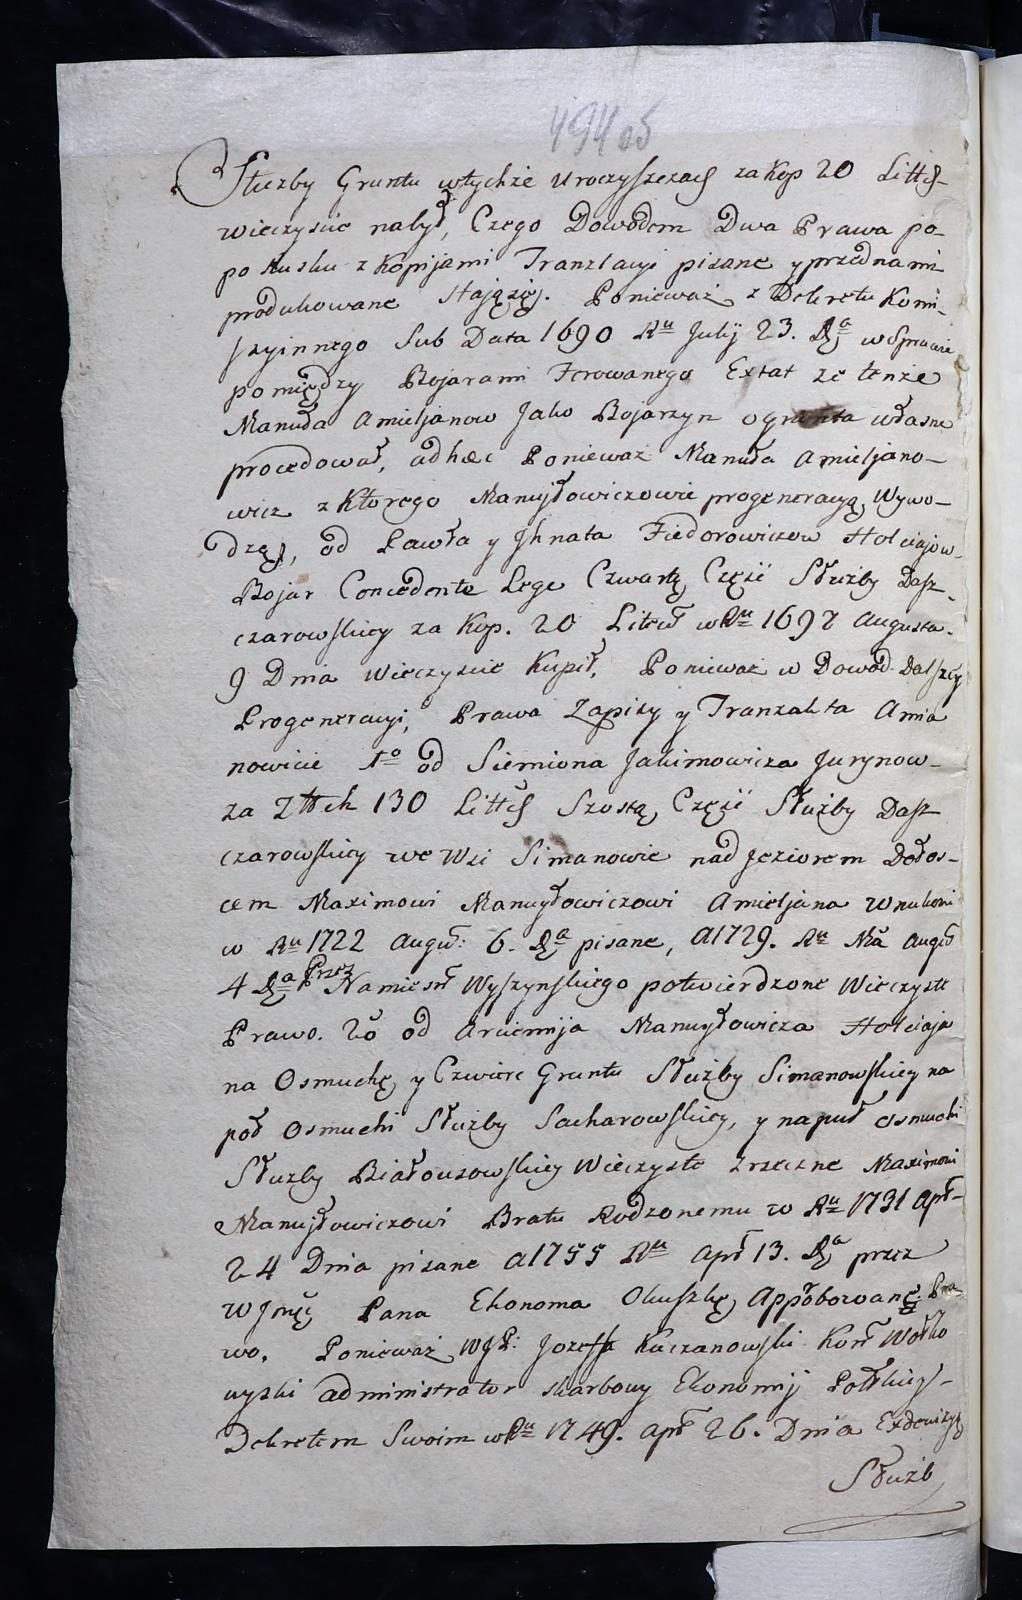 494 об
Służby Gruntu wtychże Uroczyszczach za Kop 20 Litt:
wieczyscie nabył, Czego Dowodem Dwa Prawa po-
po Rusku z Kopijami Tranzlacyi pisane y przed nami
produkowane stają się. Ponieważ z Dekretu Komi-
syinnego Sub Data 1690 Ru July 23. Da w Sprawie
pomiędzy Bojarami Ferowanego Extat że tenże
Manuła Amieljanow Jako Bojarzyn o grunta własne
procedował, ad hæc Ponieważ Manuła Amieljano-
wicz z Ktorego Manujłowiczowie progeneracyą Wywo-
dzą, od Pawła y Jhnata Fiedorowiczow Hołciajow
Bojar Concedente Lege Czwartą Część Służby Dasz-
czarowskiey za Kop. 20 Litew w Ru 1697 Augusta
9 Dnia Wieczyscie Kupił, Ponieważ w Dowod Dalszey
Progeneracyi, Prawa Zapisy y Tranzakta a mia
nowicie 1o od Siemiona Jakimowicza Jurynow-
za Zttch 130 Litt: Szostą Część Służby Dasz
czarowskiey we Wsi Simanowie nad Jeziorem Dołos-
cem Maximowi Manuyłowiczowi Amieljana Wnukowi
w Ru 1722 Augus: 6. Da pisane, a 1729. Ru Ma Augus
4 Da Przez Namiesn Wyszynskiego potwierdzone Wieczyste
Prawo. 2o od Arciemija Manuyłowicza Hołciaja
na Osmuchę y Czwierć Gruntu Służby Simanowskiey na
poł Osmuchi Służby Sacharowskiey, y na puł osmuchi
Służby Białousowskiey Wieczysto Zrzeczne Maximowi
Manujłowiczowi Bratu Rodzonemu w Ru 1731 Apr
24 Dnia pisane a 1755 Ru Apr 13. Da przez
W Jmć Pana Ekonoma Okuszkę Approbowane Pra
wo. Ponieważ WJP: Jozeff Kaczanowski Kom Wołko
wyski administrator skarbowy Ekonomij Połskiey
Dekretem Swoim w Ru 1749. Apr 26. Dnia
Służb